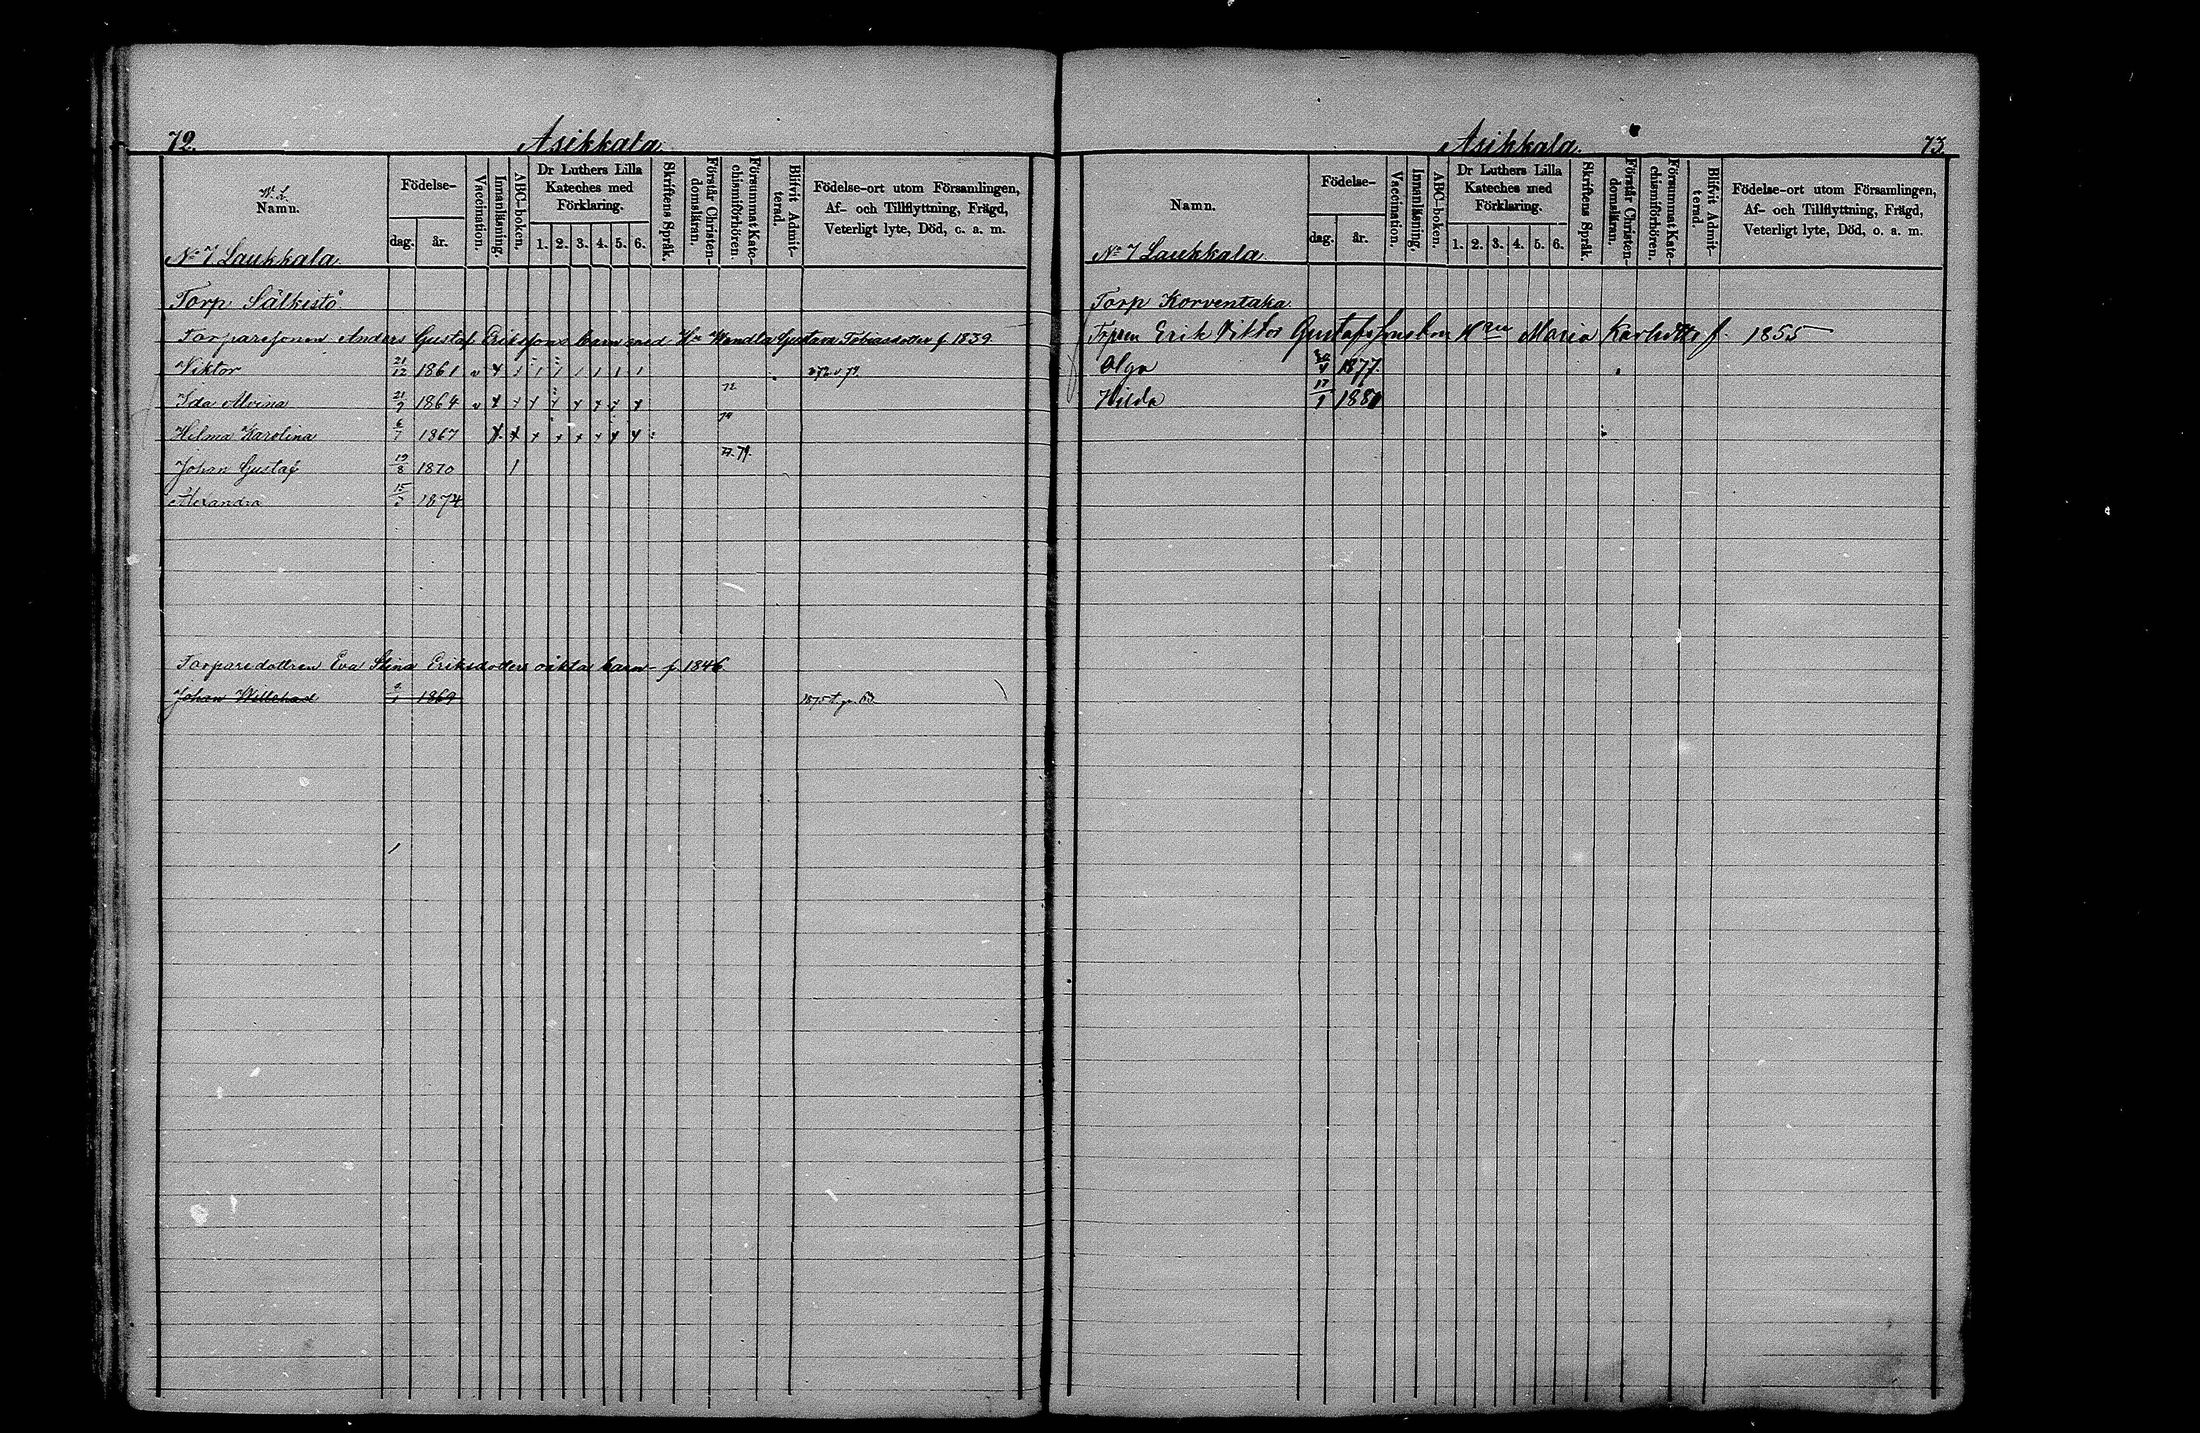 72. Asikkala.
W. L.
Namn.
Födelse-
dag. år.
Vaccination.
Innanläsning.
ABC-boken.
Dr Luthers Lilla
Kateches med
Förklaring.
1. 2. 3. 4. 5. 6.
Skriftens Språk.
Förstår Christen-
domsläran.
Försummat Kate-
chismiförhören.
Blifvit Admit-
terad.
Födelse-ort utom Församlingen,
Af- och Tillflyttning, Frägd,
Veterligt lyte, Död, o. a. m.
No 7 Laukkala.
Torp Sälkistö
Torparesonen Anders Gustaf Erikssons barn med Hu Wendla Gustava Tobiasdotter f. 1839.
Viktor 21/12 1861
Ida Alvina 21/7 1864 72
Hilma Karolina 6/7 1867 79
Johan Gustaf 19/8 1870 77. 79.
Alexandra 1874
Torparedottren Eva Stina Eriksdotters oäkta barn f. 1846
Johan Willehad 1869
Asikkala. 73.
Namn.
Födelse-
dag. år.
Vaccination.
Innanläsning.
ABC-boken.
Dr Luthers Lilla
Kateches med
Förklaring.
1. 2. 3. 4. 5. 6.
Skriftens Språk
Förstår Christen-
domsläran.
Försummat Kate-
chismiförhören.
Blifvit Admit-
terad.
Födelse-ort utom Församlingen,
Af- och Tillflyttning, Frägd,
Veterligt lyte, Död, o. a. m.
No 7 Laukkala
Torp Korventaka.
Erik Viktor Gustafsson Maria Karlsdttr f. 1855
Olga 1877.
Hilda 17/1 1881